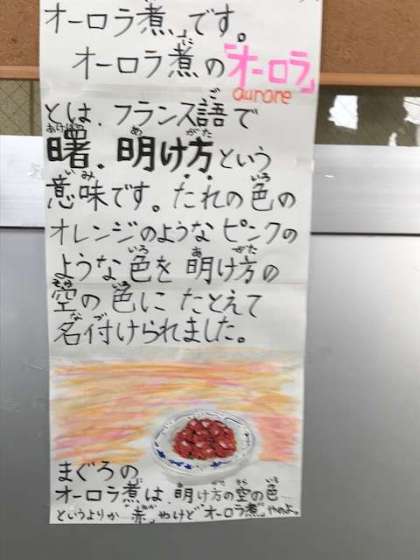 オーロラ煮」です。
オーロラ煮の「オーロラ」
aurore
とは、フランス語で
曙。明け方という
意味です。たれの色の
オレンジのようなピンクの
ような色を明け方の
空の色にたとえて
名付けられました。
まぐろの
オーロラ煮は、明け方の空の色
というよりか「赤」やけど"オーロラ煮"やのよ。